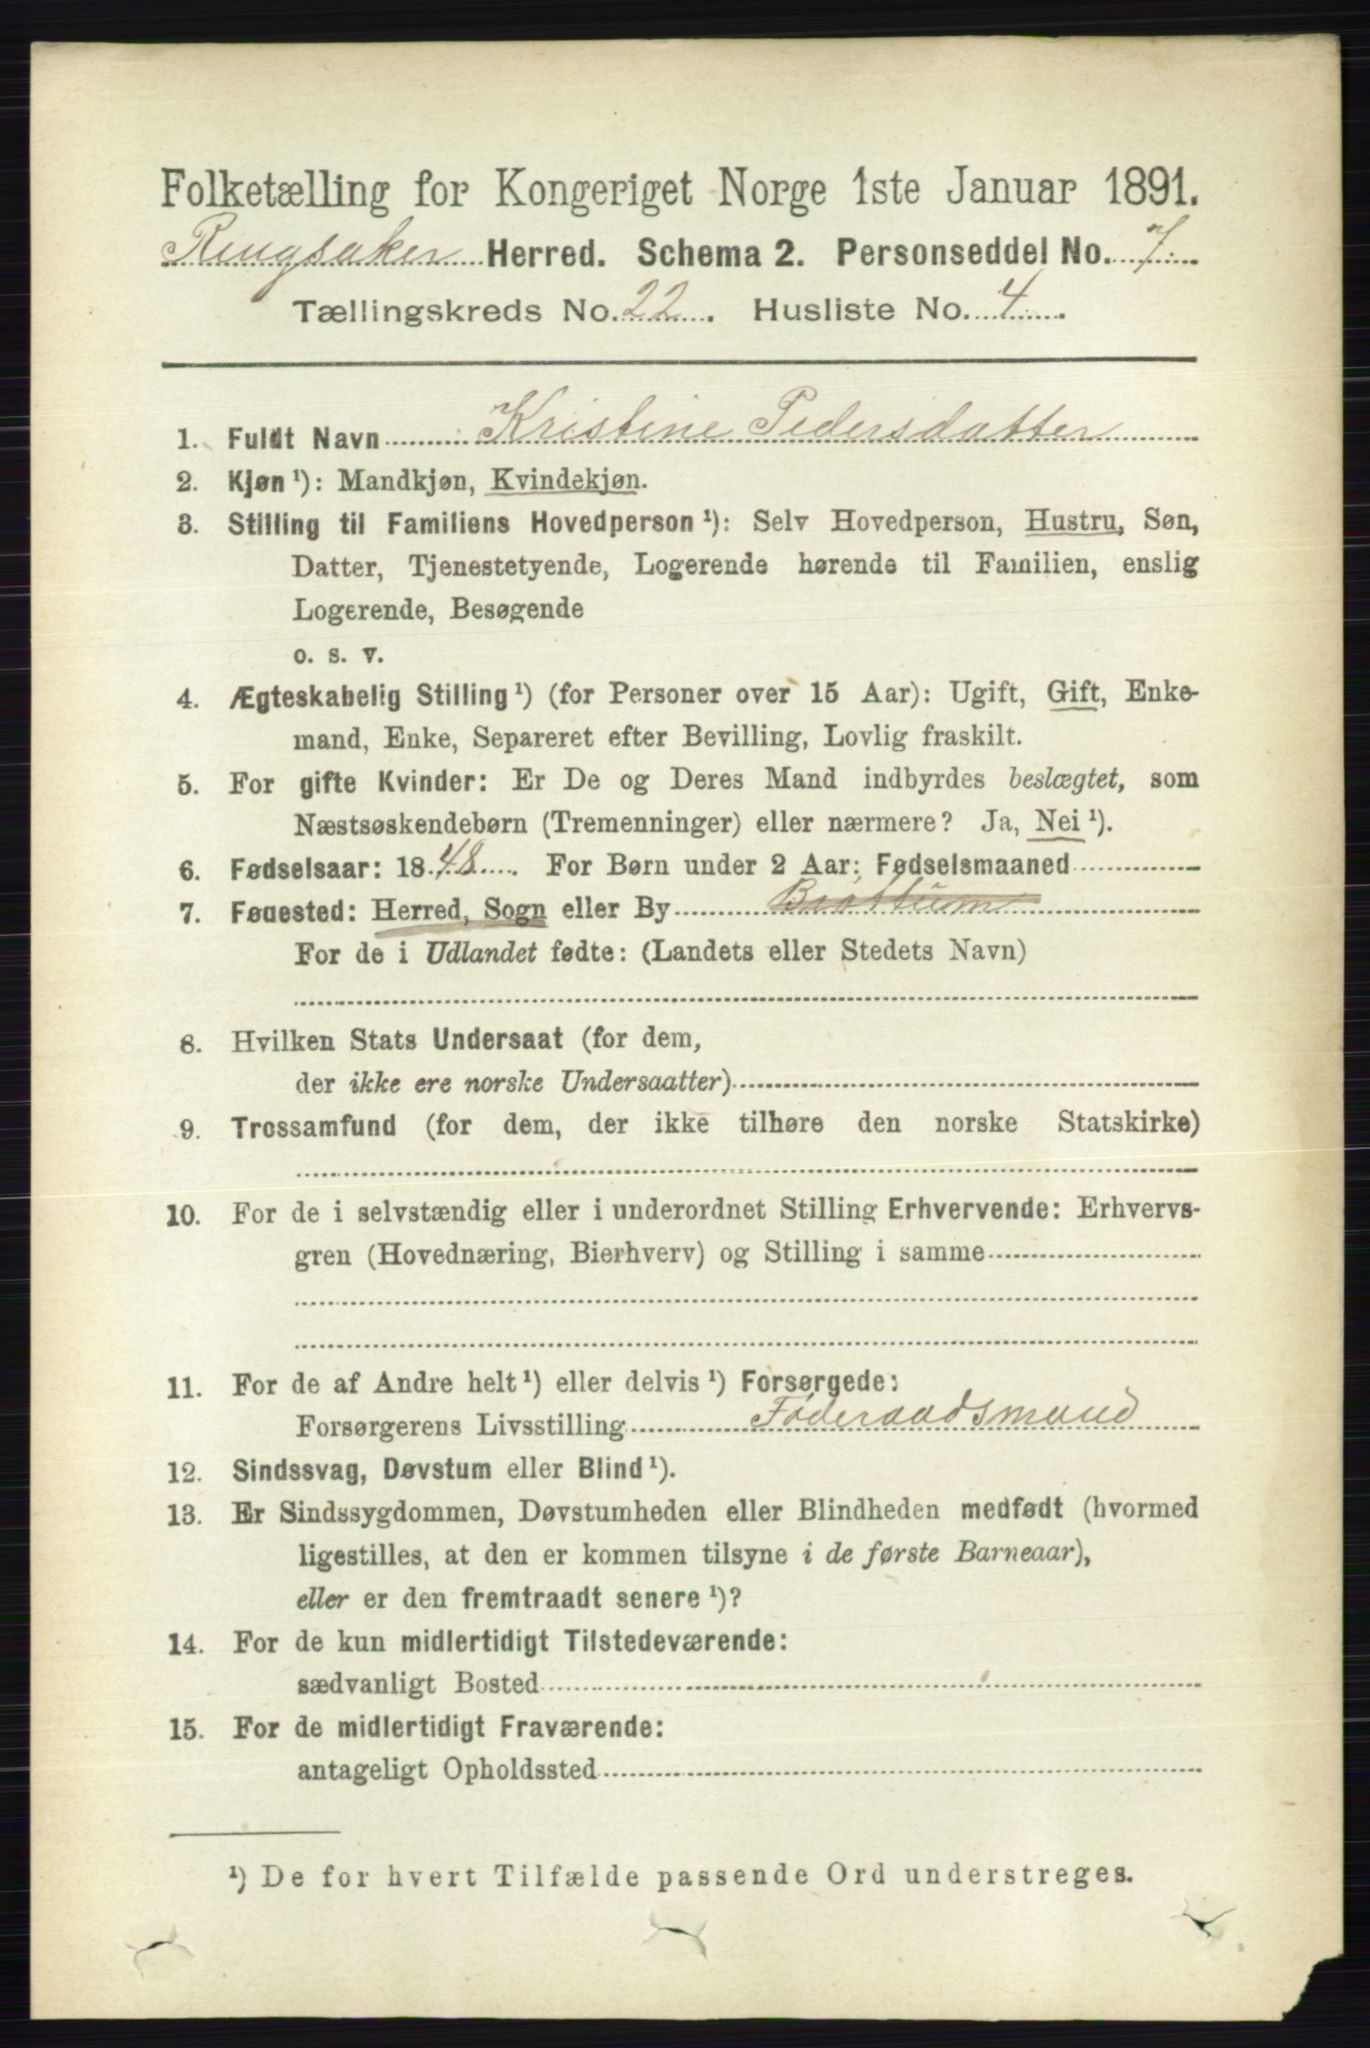 Folketælling for Kongeriget Norge 1ste Januar 1891.
Ringsaker Herred. Schema 2. Personseddel No. 7
Tællingskreds No. 22. Husliste No. 4.
1. Fuldt Navn Kristine Pedersdatter
2. Kjøn ¹): Mandkjøn, Kvindekjøn.
3. Stilling til Familiens Hovedperson ¹): Selv Hovedperson, Hustru, Søn,
Datter, Tjenestetyende, Logerende hørende til Familien, enslig
Logerende, Besøgende
o. s. v.
4. Ægteskabelig Stilling ¹) (for Personer over 15 Aar): Ugift, Gift, Enke-
mand, Enke, Separeret efter Bevilling, Lovlig fraskilt.
5. For gifte Kvinder: Er De og Deres Mand indbyrdes beslægtet, som
Næstsøskendebørn (Tremenninger) eller nærmere? Ja, Nei ¹).
6. Fødselsaar: 1848. For Børn under 2 Aar: Fødselsmaaned
7. Føuested: Herred, Sogn eller By Brøttum
For de i Udlandet fødte: (Landets eller Stedets Navn)
8. Hvilken Stats Undersaat (for dem,
der ikke ere norske Undersaatter)
9. Trossamfund (for dem, der ikke tilhøre den norske Statskirke)
10. For de i selvstændig eller i underordnet Stilling Erhvervende: Erhvervs-
gren (Hovednæring, Bierhverv) og Stilling i samme
11. For de af Andre helt ¹) eller delvis ¹) Forsørgede:
Forsørgerens Livsstilling Føderaadsmand
12. Sindssvag, Døvstum eller Blind ¹).
13. Er Sindssygdommen, Døvstumheden eller Blindheden medfødt (hvormed
ligestilles, at den er kommen tilsyne i de første Barneaar),
eller er den fremtraadt senere ¹)?
14. For de kun midlertidigt Tilstedeværende:
sædvanligt Bosted
15. For de midlertidigt Fraværende:
antageligt Opholdssted
¹) De for hvert Tilfælde passende Ord understreges.